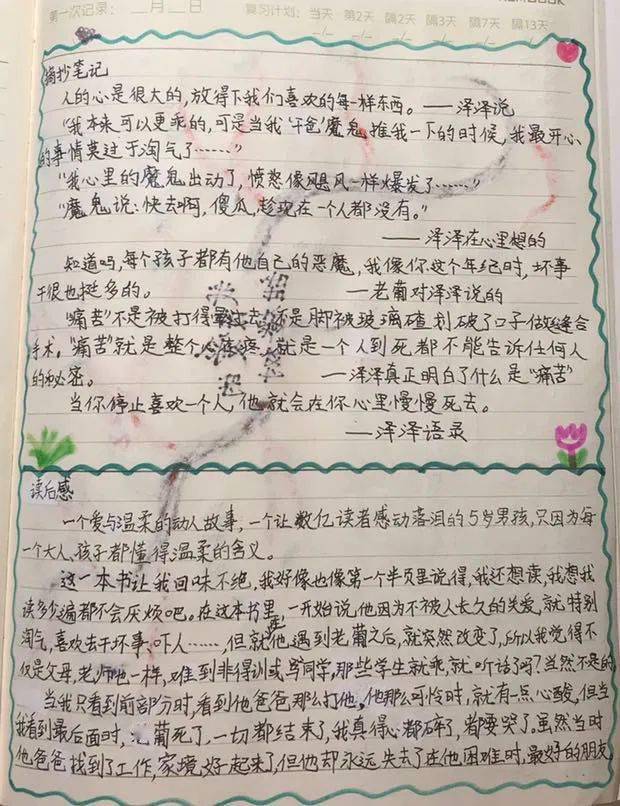 第一次记录：__月__日 复习计划：当天 第2天 隔2天 隔3天 隔7天 隔13天
摘抄笔记
人的心是很大的，放得下我们喜欢的每一样东西。——泽泽说
“我本来可以更乖的，可是当我干爸魔鬼推我一下的时候，我最开心
的事情莫过于淘气了……”
“我心里的魔鬼出动了，愤怒像飓风一样爆发了……”
“魔鬼说：快去啊，傻瓜，趁现在一个人都没有。”
——泽泽在心里想的
知道吗，每个孩子都有他自己的恶魔，我像你这个年纪时，坏事
干很也挺多的。 —老葡对泽泽说的
“痛苦”不是被打得晕过去，不是脚被玻璃碴划破了口子做缝合
手术。“痛苦”就是整个人疼，就是一个人到死都不能告诉任何人
的秘密。 —泽泽真正明白了什么是“痛苦”
当你停止喜欢一个人，他就会在你心里慢慢死去。
—泽泽语录
读后感
一个爱与温柔的动人故事，一个让数亿读者感动落泪的5岁男孩，只因为每
一个大人、孩子都懂得温柔的含义。
这一本书让我回味不绝，我好像也像第一个半页里说得，我还想读，我想我
读多少遍都不会厌烦吧。在这本书里，一开始说，他因为不被人长久的关爱，就特别
淘气，喜欢去干坏事、吓人……，但就他遇到老葡之后，就突然改变了，所以我觉得不
仅是父母，老师也一样，难到非得训或骂同学，那些学生就乖，就听话了吗？当然不是的
当我只看到前部分时，看到他爸爸那么打他，他那么可怜时，就有一点心酸，但当
我看到最后面时，老葡死了，一切都结束了，我真得心都碎了，都要哭了，虽然当时
他爸爸找到了工作，家境好起来了，但他却永远失去了在他困难时，最好的朋友